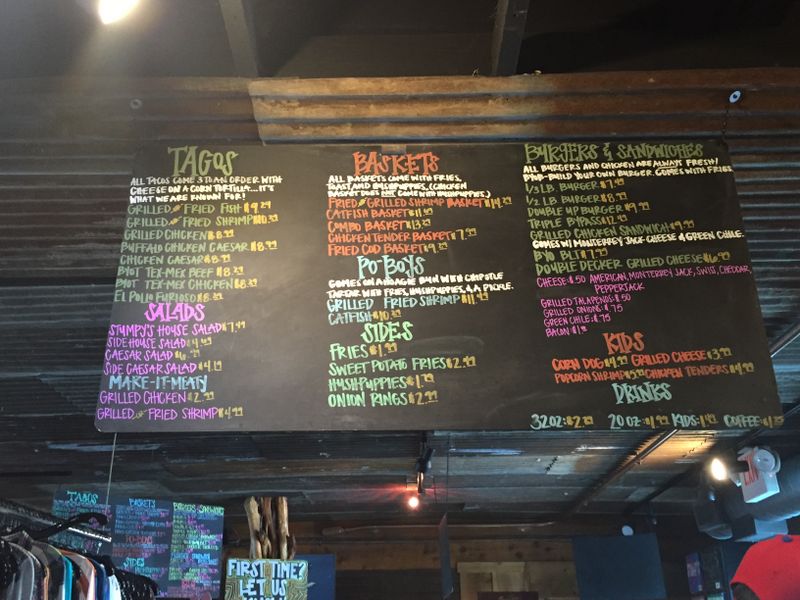 TACOS
ALL TACOS COME 3 TO AN ORDER WITH
CHEESE ON A CORN TORTILLA...IT'S
WHAT WE ARE KNOWN FOR!
GRILLED OR FRIED FISH $9.29
GRILLED OR FRIED SHRIMP $10.29
GRILLED CHICKEN $8.99
BUFFALO CHICKEN CAESAR $8.99
CHICKEN CAESAR $8.99
BYOT TEX-MEX BEEF $8.29
BYOT TEX-MEX CHICKEN $8.29
EL POLLO FURIOSO $8.29
SALADS
STUMPY'S HOUSE SALAD $7.49
SIDE HOUSE SALAD $4.49
CAESAR SALAD
SIDE CAESAR SALAD $4.19
MAKE-IT-MEATY
GRILLED CHICKEN $2.99
GRILLED OR FRIED SHRIMP $4.99
BASKETS
ALL BASKETS COME WITH FRIES,
TOAST AND HUSHPUPPIES. (CHICKEN
BASKET DOES NOT COME WITH HUSHPUPPIES)
FRIED OR GRILLED SHRIMP BASKET $14.29
CATFISH BASKET $11.99
COMBO BASKET $13.29
CHICKEN TENDER BASKET $7.99
FRIED COD BASKET $9.29
PO-BOYS
COMES ON A HOAGIE BUN WITH CHIPOTLE
TARTAR WITH FRIES, HUSHPUPPIES, & A PICKLE.
GRILLED FRIED SHRIMP $11.99
CATFISH $10.29
SIDES
FRIES $1.99
SWEET POTATO FRIES $2.99
HUSHPUPPIES $1.79
ONION RINGS $2.99
BURGERS & SANDWICHES
ALL BURGERS AND CHICKEN ARE ALWAYS FRESH!
BUILD YOUR OWN BURGER. COMES WITH FRIES
1/3 LB. BURGER $7.99
1/2 LB BURGER $8.99
DOUBLE MLP BURGER $9.99
TRIPLE BYPASS
GRILLED CHICKEN SANDWICH $9.99
COMES W/ MONTERREY JACK CHEESE & GREEN CHILE.
BYO BLT $7.99
DOUBLE DECKER GRILLED CHEESE $6.99
CHEESE $.50 AMERICAN, MONTERREY JACK, SWISS, CHEDDAR,
PEPPERJACK
GRILLED JALAPENOS $.50
GRILLED ONIONS $.75
GREEN CHILE $.75
BACON $1
KIDS
CORN DOG $4.99 GRILLED CHEESE $3.99
POPCORN SHRIMP $5.99 CHICKEN TENDERS $4.99
DRINKS
32 OZ: $2.29 20 OZ: $1.99 KIDS: COFFEE:
TACOS
BASKETS
BURGERS & SANDWICHES
PO-BOYS
SIDES
FIRST TIME?
LET US
FAN